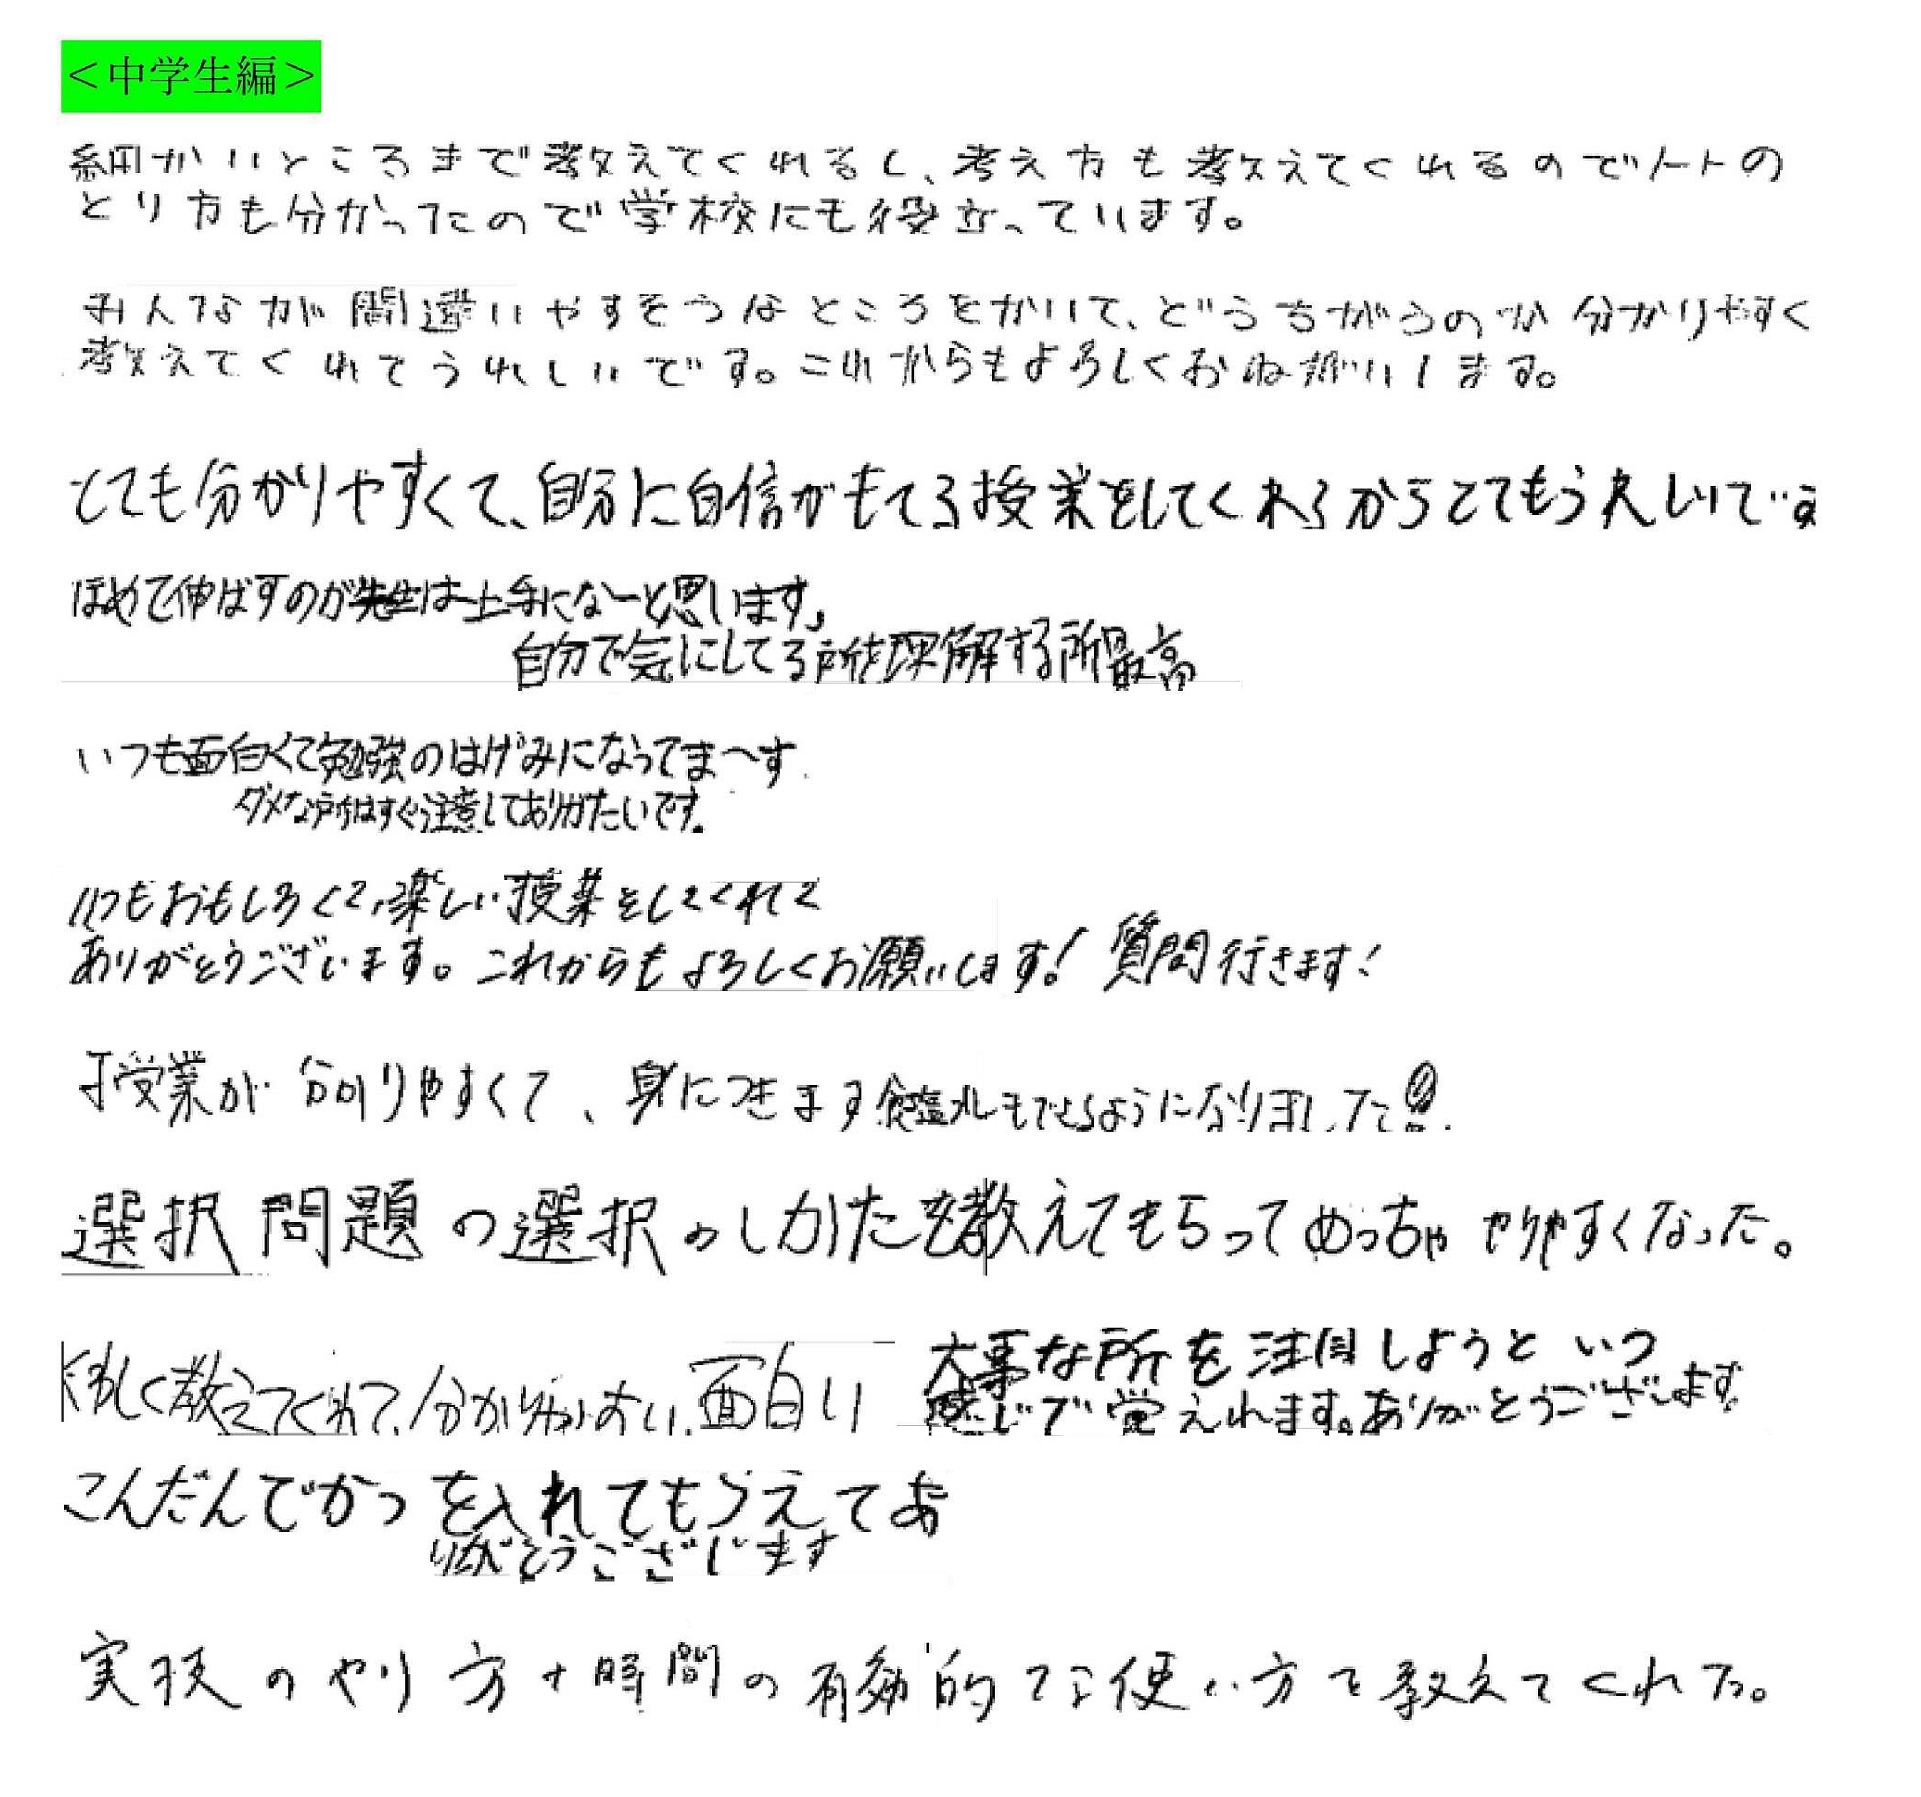 ＜中学生編＞
細かいところまで教えてくれるし、考え方も教えてくれるのでノートの
とり方も分かったので学校にも役立っています。
みんなが間違いやすそうなところをかいて、どうちがうのか分かりやすく
教えてくれてうれしいです。これからもよろしくおねがいします。
とても分かりやすくて、自分に自信がもてる授業をしてくれるからとてもうれしいです
ほめて伸ばすのが先生は上手になーと思います。
自分で気にしてる所を理解する所最高
いつも面白くて勉強のはげみになってまーす
ダメな所はすぐ注意してありがたいです。
いつもおもしろくて、楽しい授業をしてくれて
ありがとうございます。これからもよろしくお願いします！質問行きます！
授業が分かりやすくて、身につきます もできるようになりました
選択問題の選択のしかたを教えてもらってめっちゃやりやすくなった。
しく教えてくれて、分かりやすい、面白い
大事な所を注目しようといつ
感じで覚えれます。ありがとうございます
こんだんでかつを入れてもらえてあ
りがとうございます
実技のやり方+時間の有効的な使い方を教えてくれた。